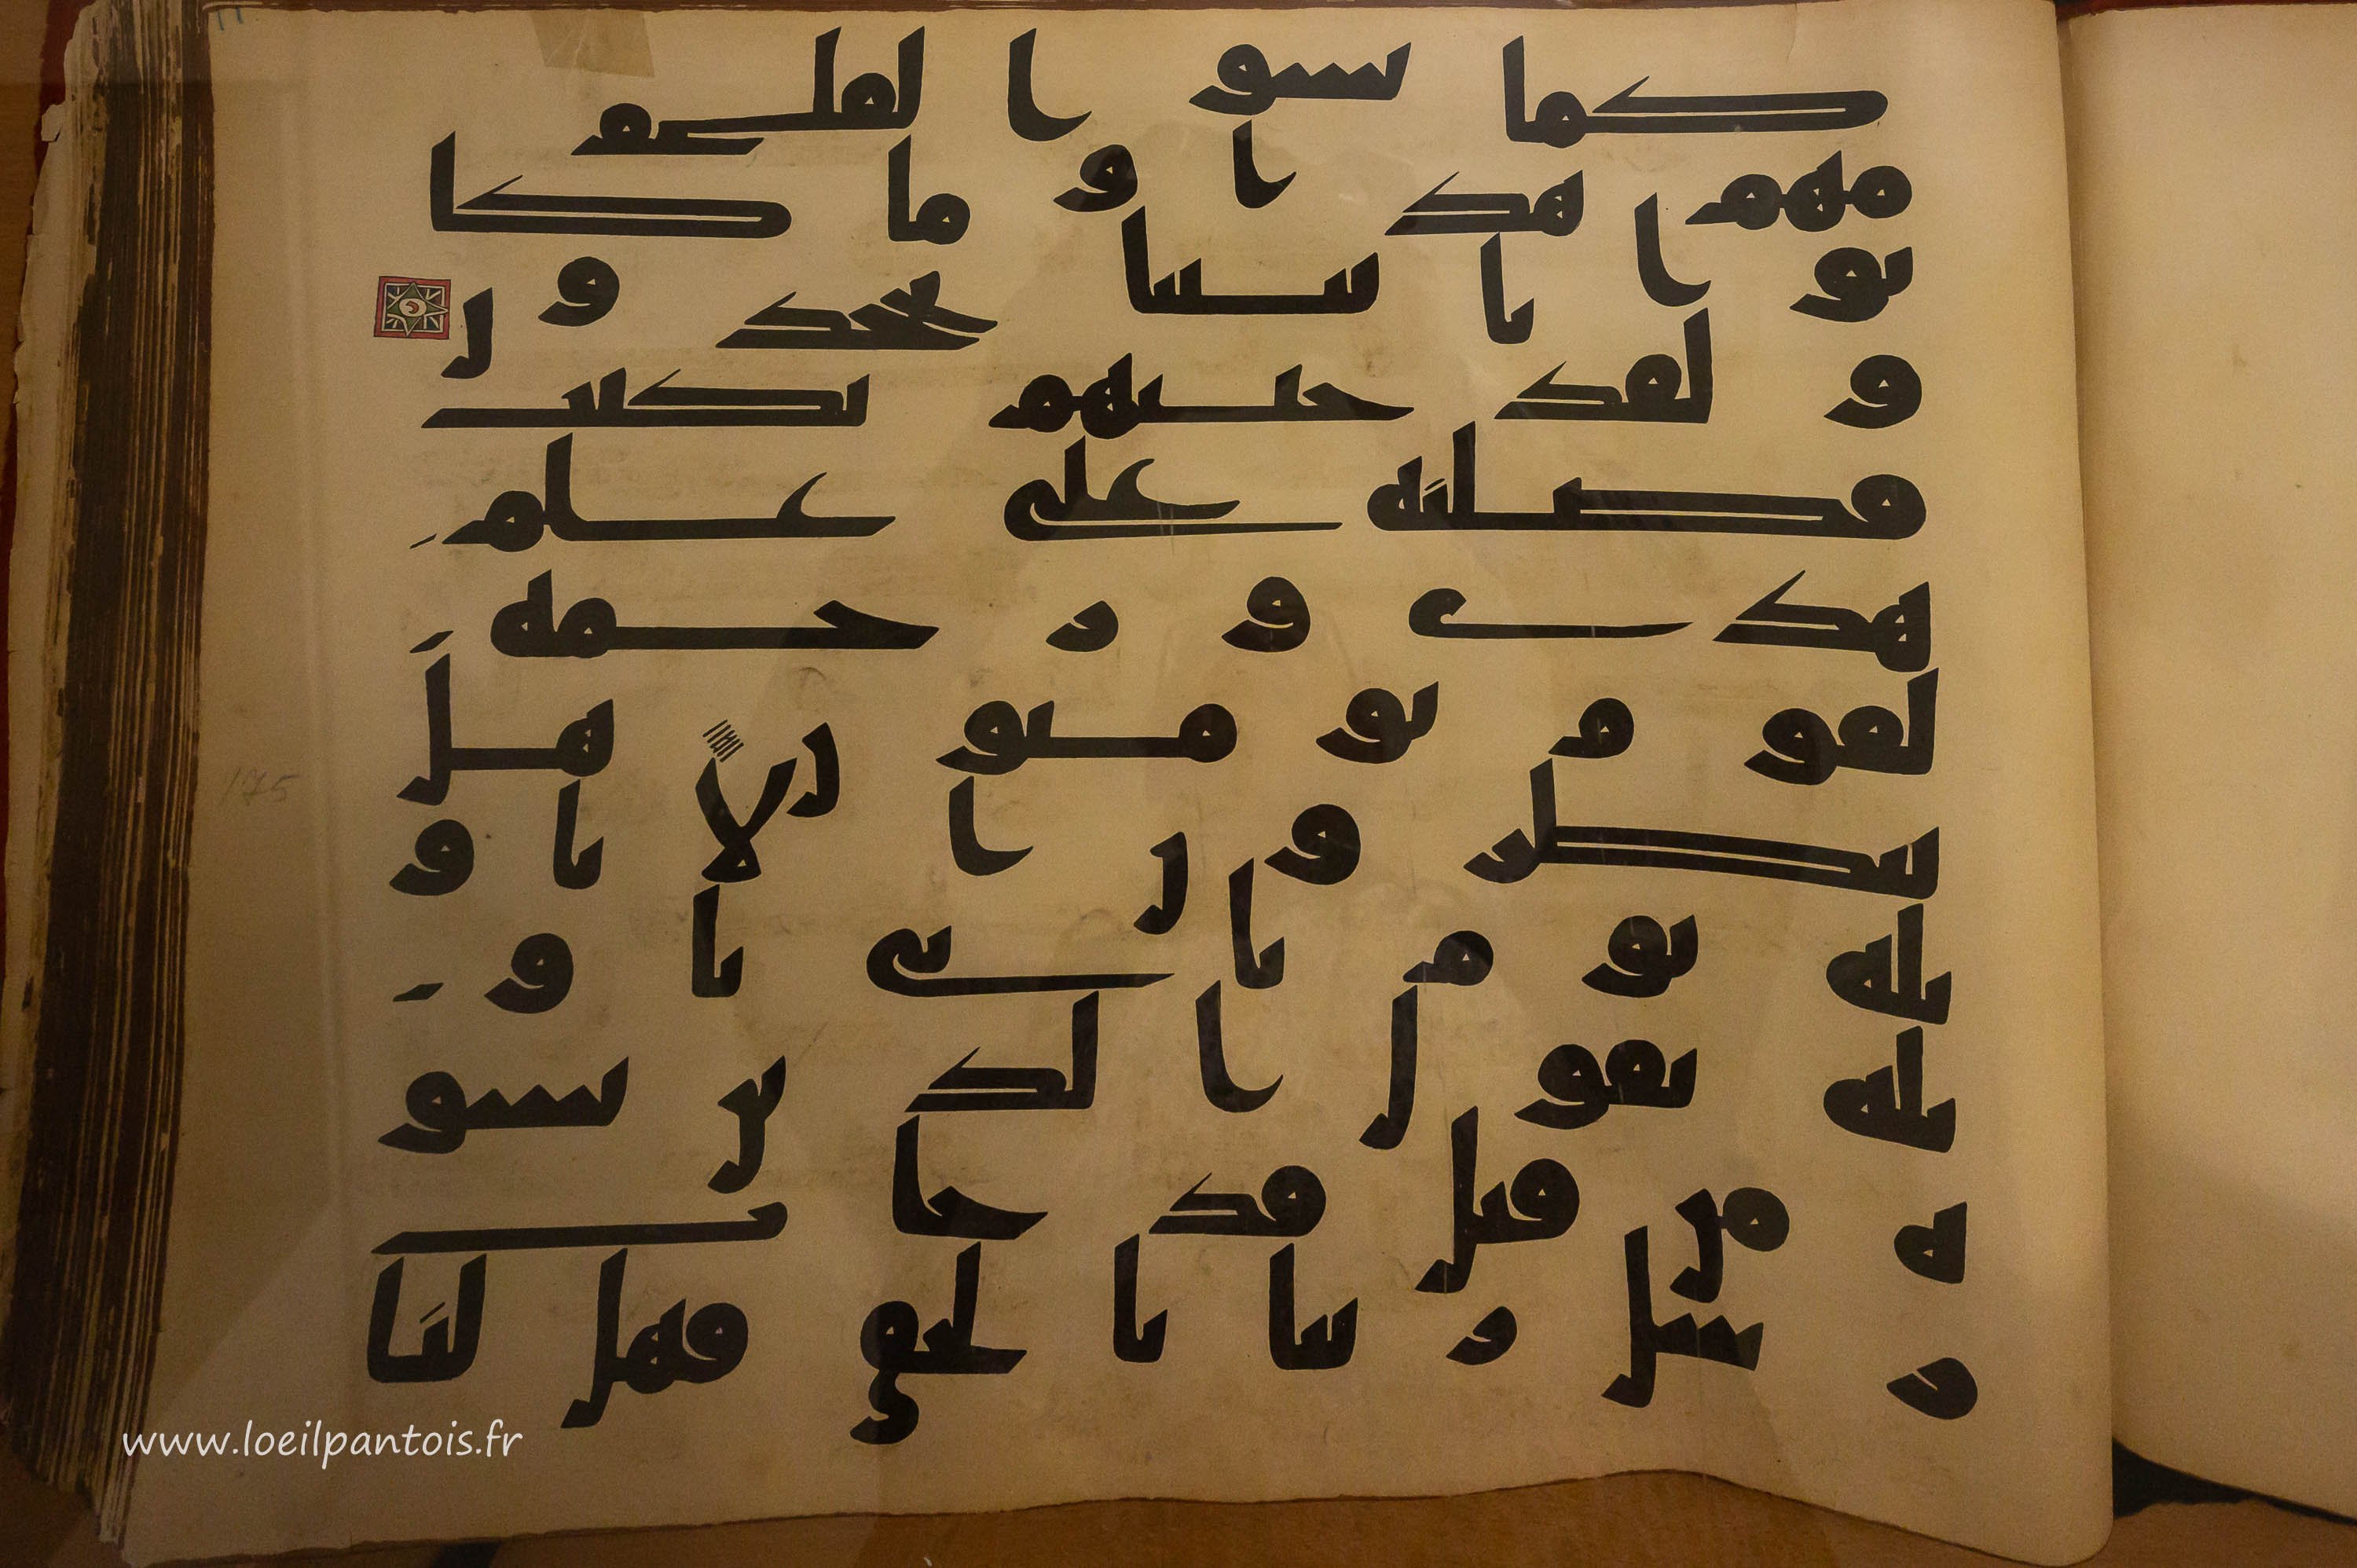 كما نسوا لقا يو
مهم هذا وما كا
نوا باييتنا يجحدون
ولقد جينهم بكتب
فصلنه على علم
هدى ورحمه
لقوم يومنون هل
ينظرون الا تاو
يله يوم ياتى تاو
يله يقول الذين نسو
ه من قبل قد جات
رسل ربنا بالحق فهل لنا
www.loeilpantois.fr